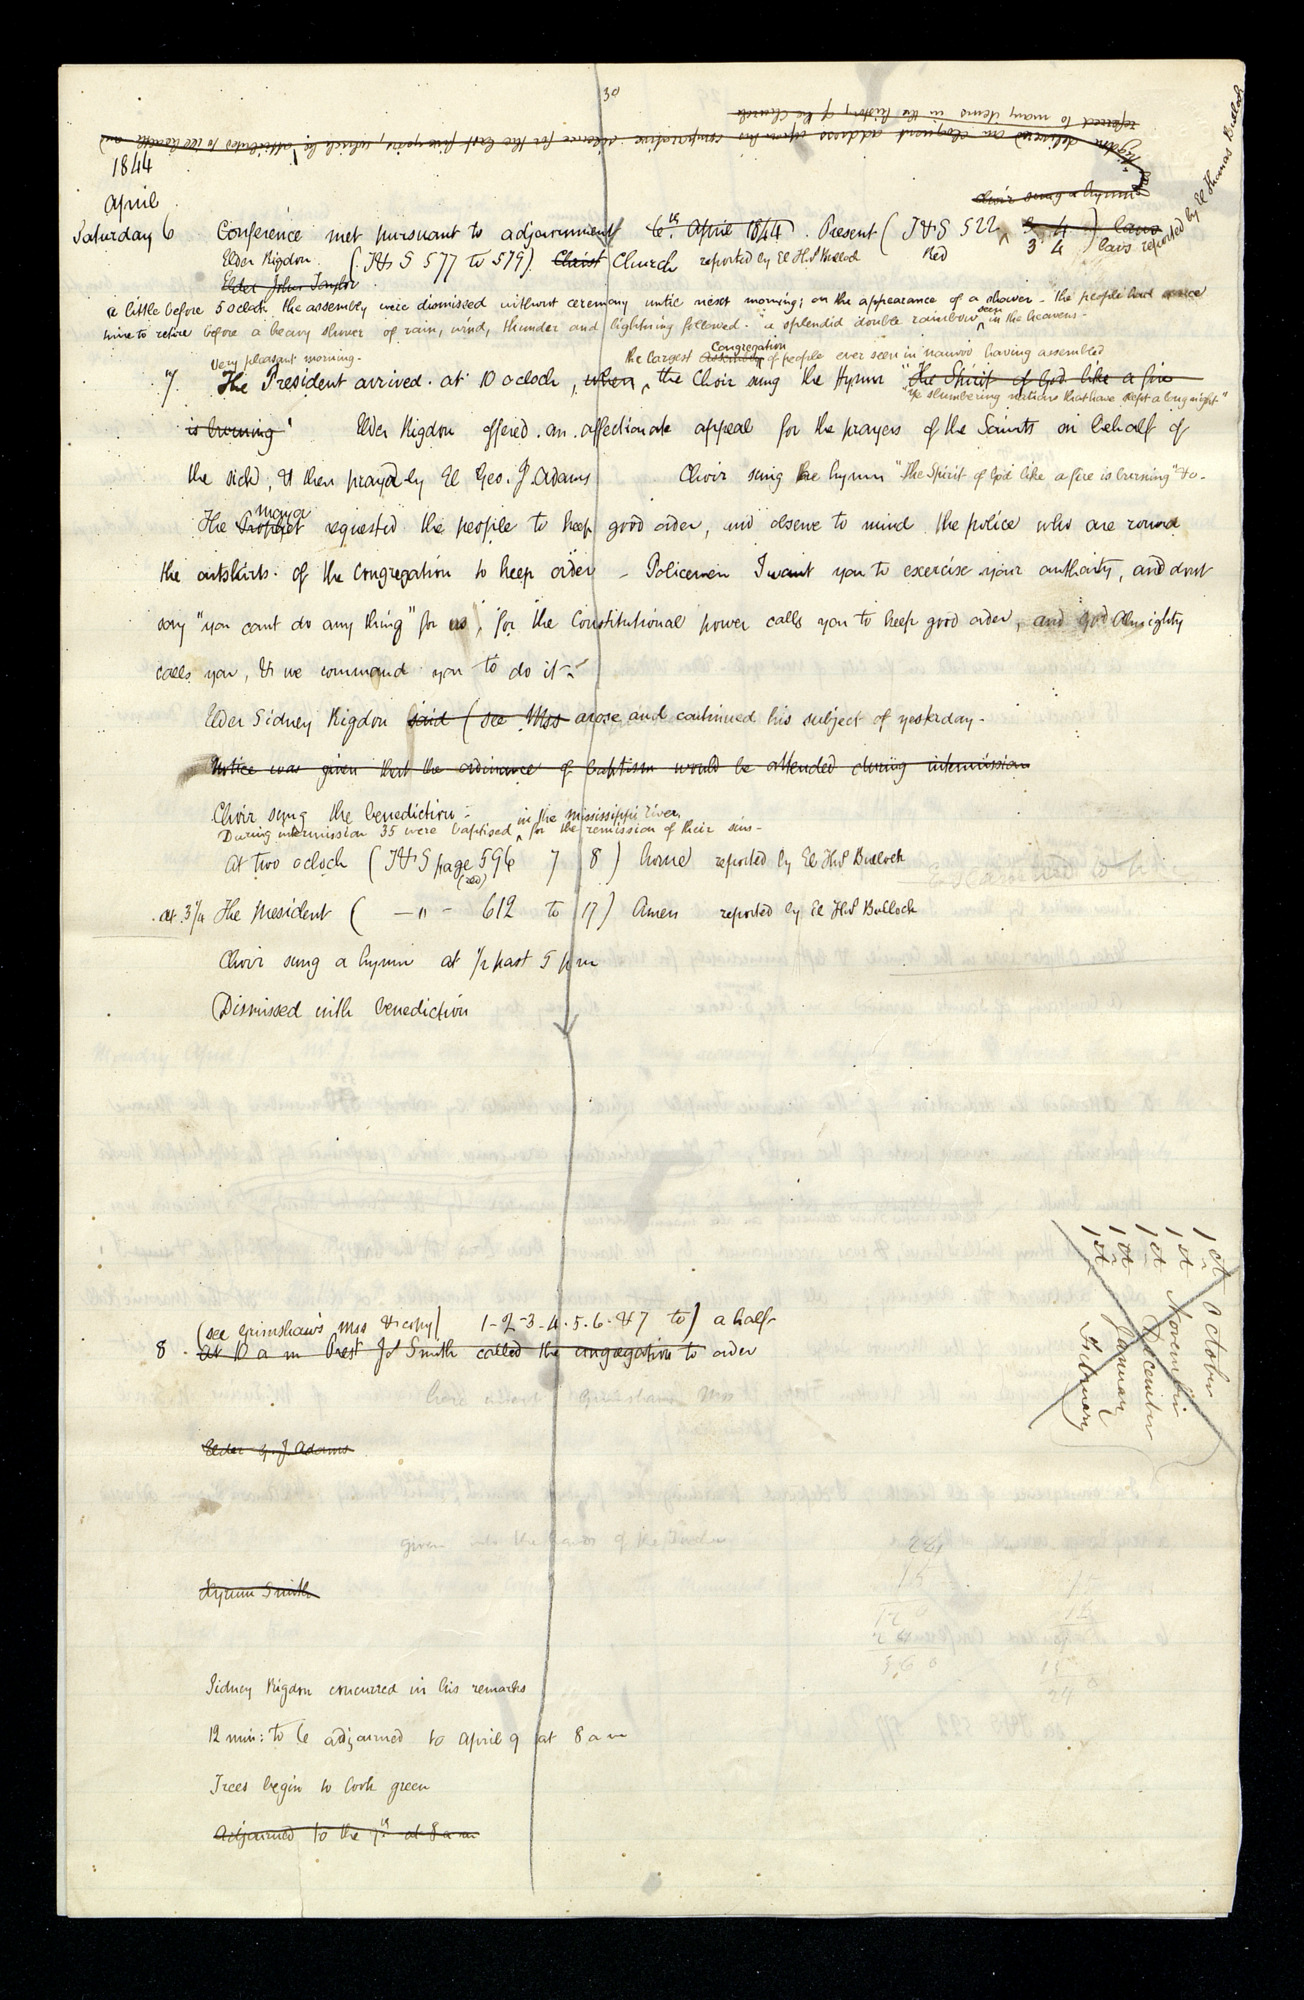 30
Rigdon delivered an eloquent address upon his comparative silence for the last five years, which he attributes to ill health and
referred to many items in the history of the church
choir sung a hymn
1844
April
Saturday 6 Conference met pursuant to adjournment 6th April 1844. Present (T&S 522 3 4) laws
Red 3 4) laws reported by El Thomas Bullock
Elder Rigdon. (T&S 577 to 579) Christ Church reported by El Ths Bullock
Elder John Taylor
a little before 5 oclock the assembly were dismissed without ceremony until next morning; on the appearance of a shower - the people had once
time to retire before a heavy shower of rain, wind, thunder and lightning followed. a splendid double rainbow seen in the heavens-
very pleasant morning.
the largest Assembly Congregation of people ever seen in nauvoo having assembled
7. The President arrived at 10 oclock, when, the Choir sung the Hymn "the Spirit of God like a fire
"Ye slumbering nations that have slept a long night"
is burning" Elder Rigdon offered an affectionate appeal for the prayers of the Saints on behalf of
the sick, & then prayed by El Geo. J. Adams Choir sung the hymn "The Spirit of God like a fire is burning" &c-
mayor
The Prophet requested the people to keep good order, and observe to mind the police who are round
the outskirts of the Congregation to keep order - Policemen I want you to exercise your authority, and dont
say "you cant do any thing" for us, for the Constitutional power calls you to keep good order, and God Almighty
calls you, & we command you to do it-"
Elder Sidney Rigdon said (see Mss arose and continued his subject of yesterday-
Notice was given that the ordinance of baptism would be attended during intermission
Choir sung the benediction-
in the mississippi river
During intermission 35 were baptised for the remission of their sins-
At two oclock (T&S page 596 7 8) home reported by El Ths Bullock
(red)
at 3 1/4 The President ( —"- 612 to 17) Amen reported by El Ths Bullock
Choir sung a hymn at 1/2 past 5 pm
Dismissed with benediction
1st October
1st November
1st December
1st January
1st February
(see Grimshaw's Mss & copy) 1-2-3-4-5-6-&7 to) a half-
8. at 10 a m Prest J Smith called the congregation to order
Elder G. J. Adams
given into the hands of the
Hyrum Smith
Sidney Rigdon concurred in his remarks
12 min: to 6 adjourned to April 9 at 8 a m
Trees begin to look green
Adjourned to the 9th at 8 a m